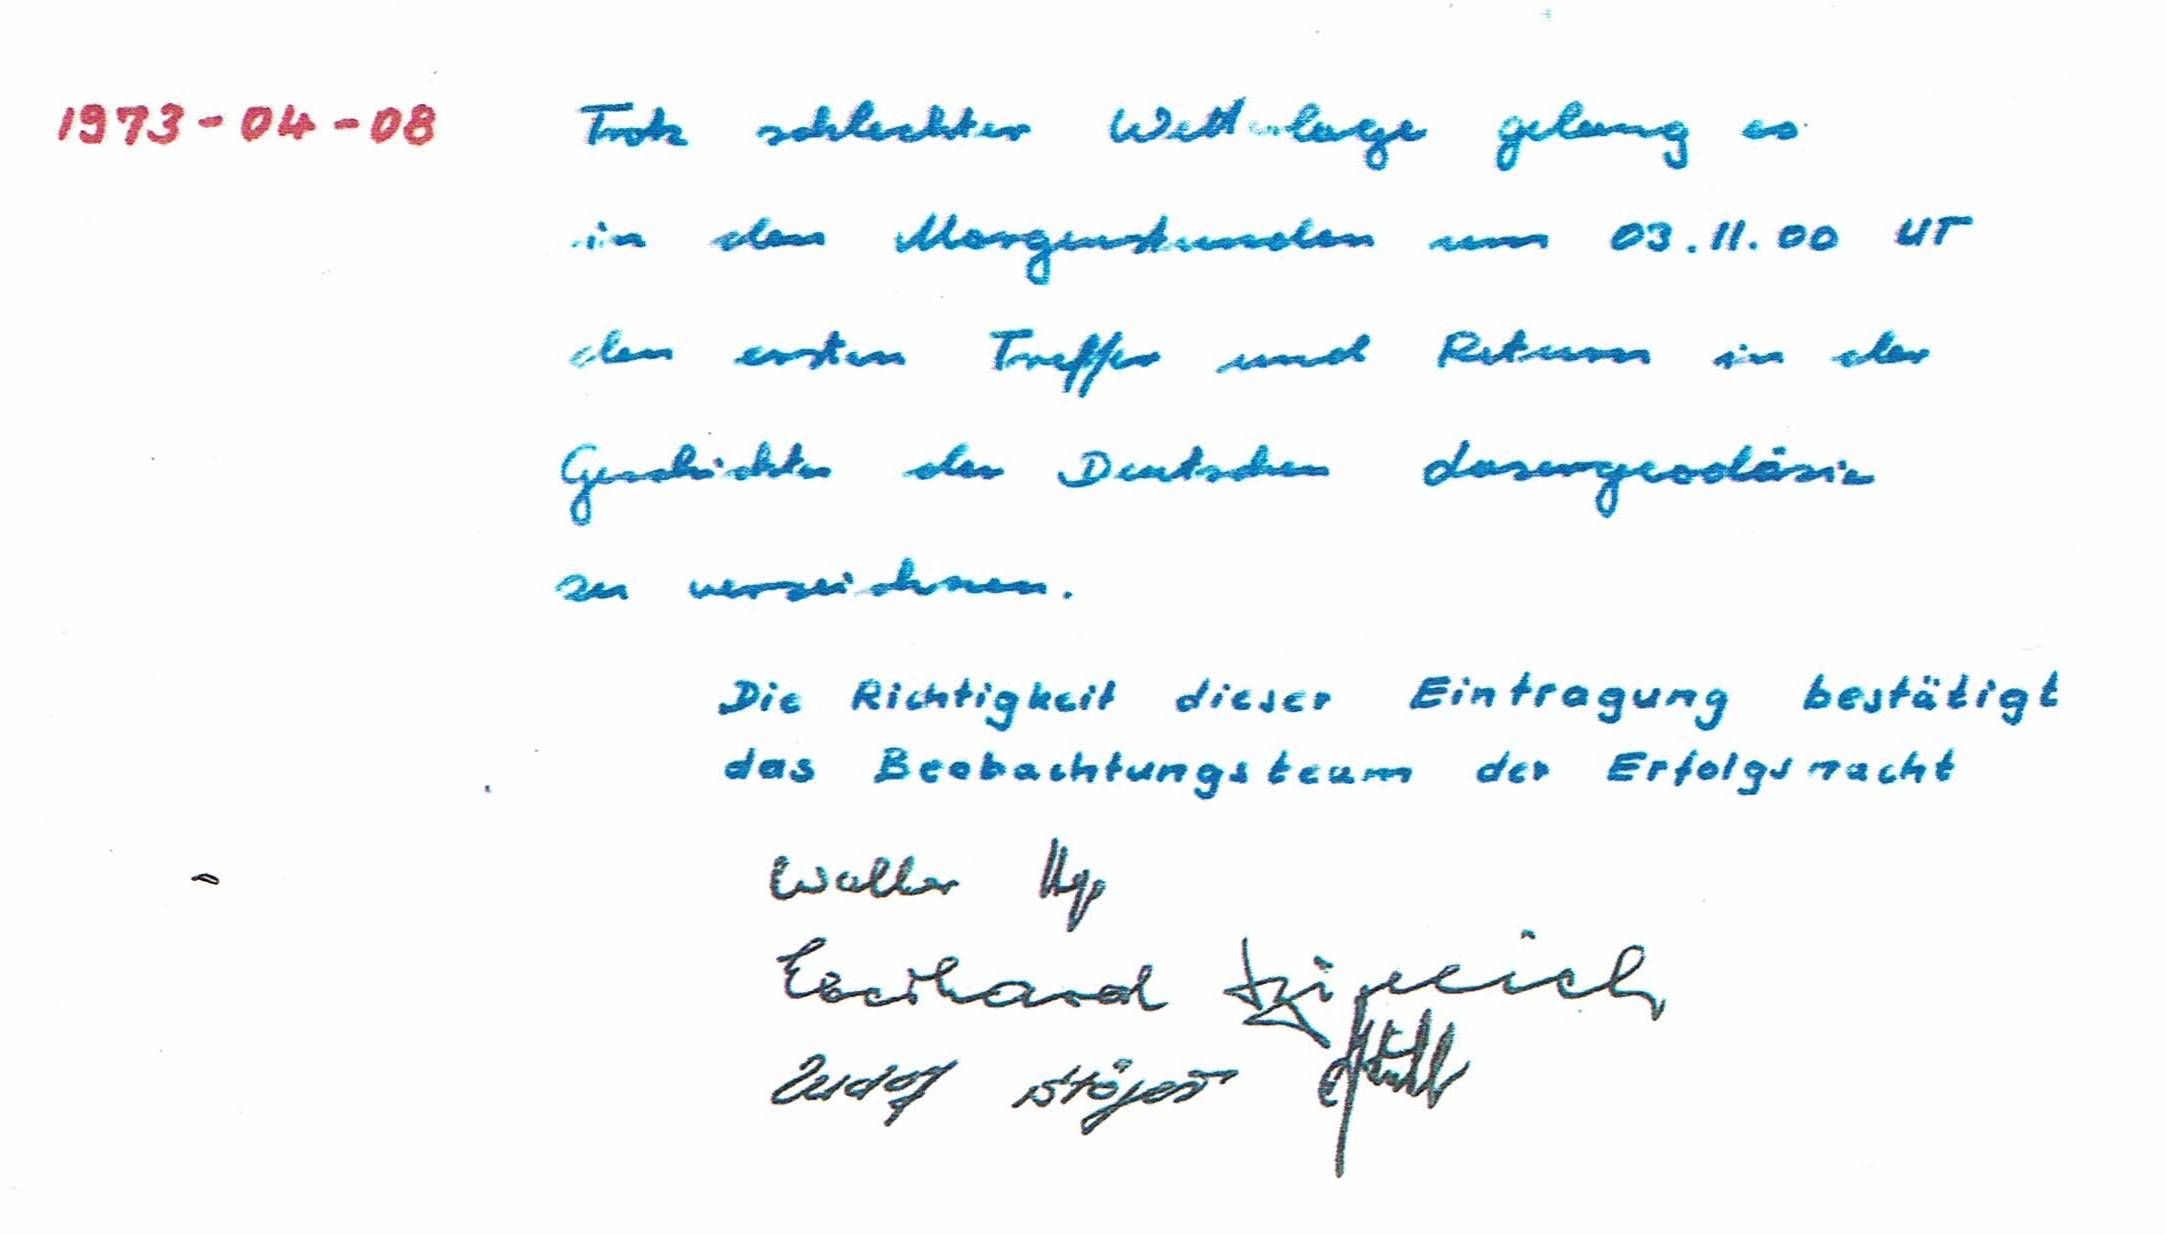 1973-04-08 Trotz schlechter Wetterlage gelang es
in den Morgenstunden um 03.11.00 UT
den ersten Treffer und Return in der
Geschichte der Deutschen Lasergeodäsie
zu verzeichnen.
Die Richtigkeit dieser Eintragung bestätigt
das Beobachtungsteam der Erfolgsnacht
Walter
Eberhard
Rudolf Stöger